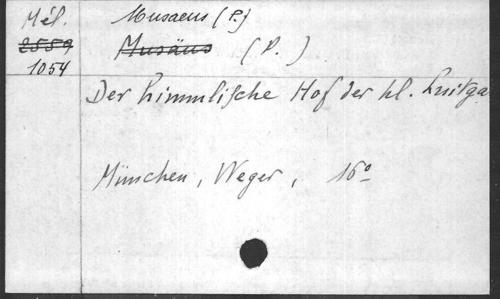 Mél.
2559
1054
Musaeus (P.)
Musäus (P.)
Der himmlische Hof der hl. Luitga
München, Weger, 16º